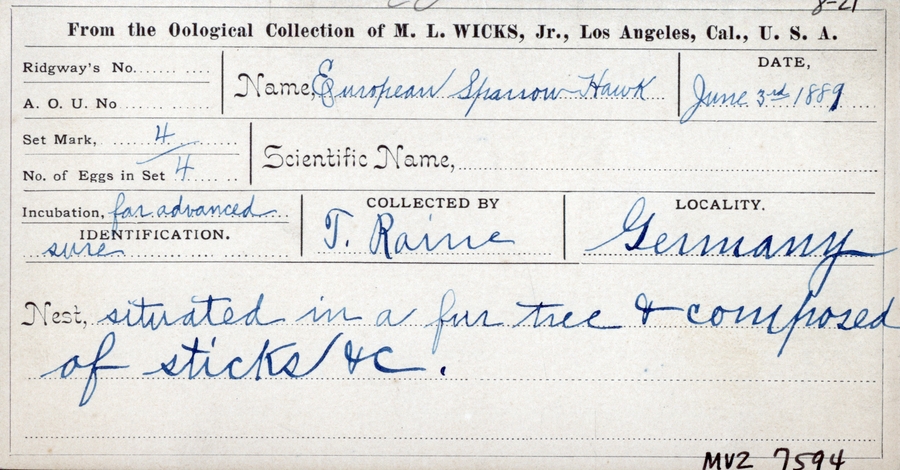 8-21
From the Oological Collection of M. L. WICKS, Jr., Los Angeles, Cal., U. S. A.
Ridgway's No.
A. O. U. No
Name, European Sparrow Hawk
DATE,
June 3rd 1889
Set Mark, 4
No. of Eggs in Set 4
Scientific Name,
Incubation, far advanced
IDENTIFICATION.
sure
COLLECTED BY
T. Raine
LOCALITY.
Germany
Nest, situated in a fur tree & composed
of sticks &c.
MVZ 7594